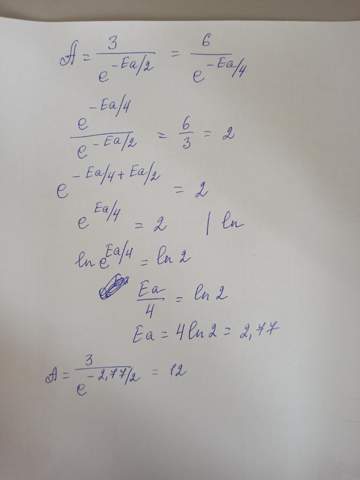 A = 3/e^(-Ea/2) = 6/e^(-Ea/4)
e^(-Ea/4)/e^(-Ea/2) = 6/3 = 2
e^(-Ea/4+Ea/2) = 2
e^(Ea/4) = 2 | ln
ln e^(Ea/4) = ln 2
Ea/4 = ln 2
Ea = 4 ln 2 = 2,77
A = 3/e^(-2,77/2) = 12